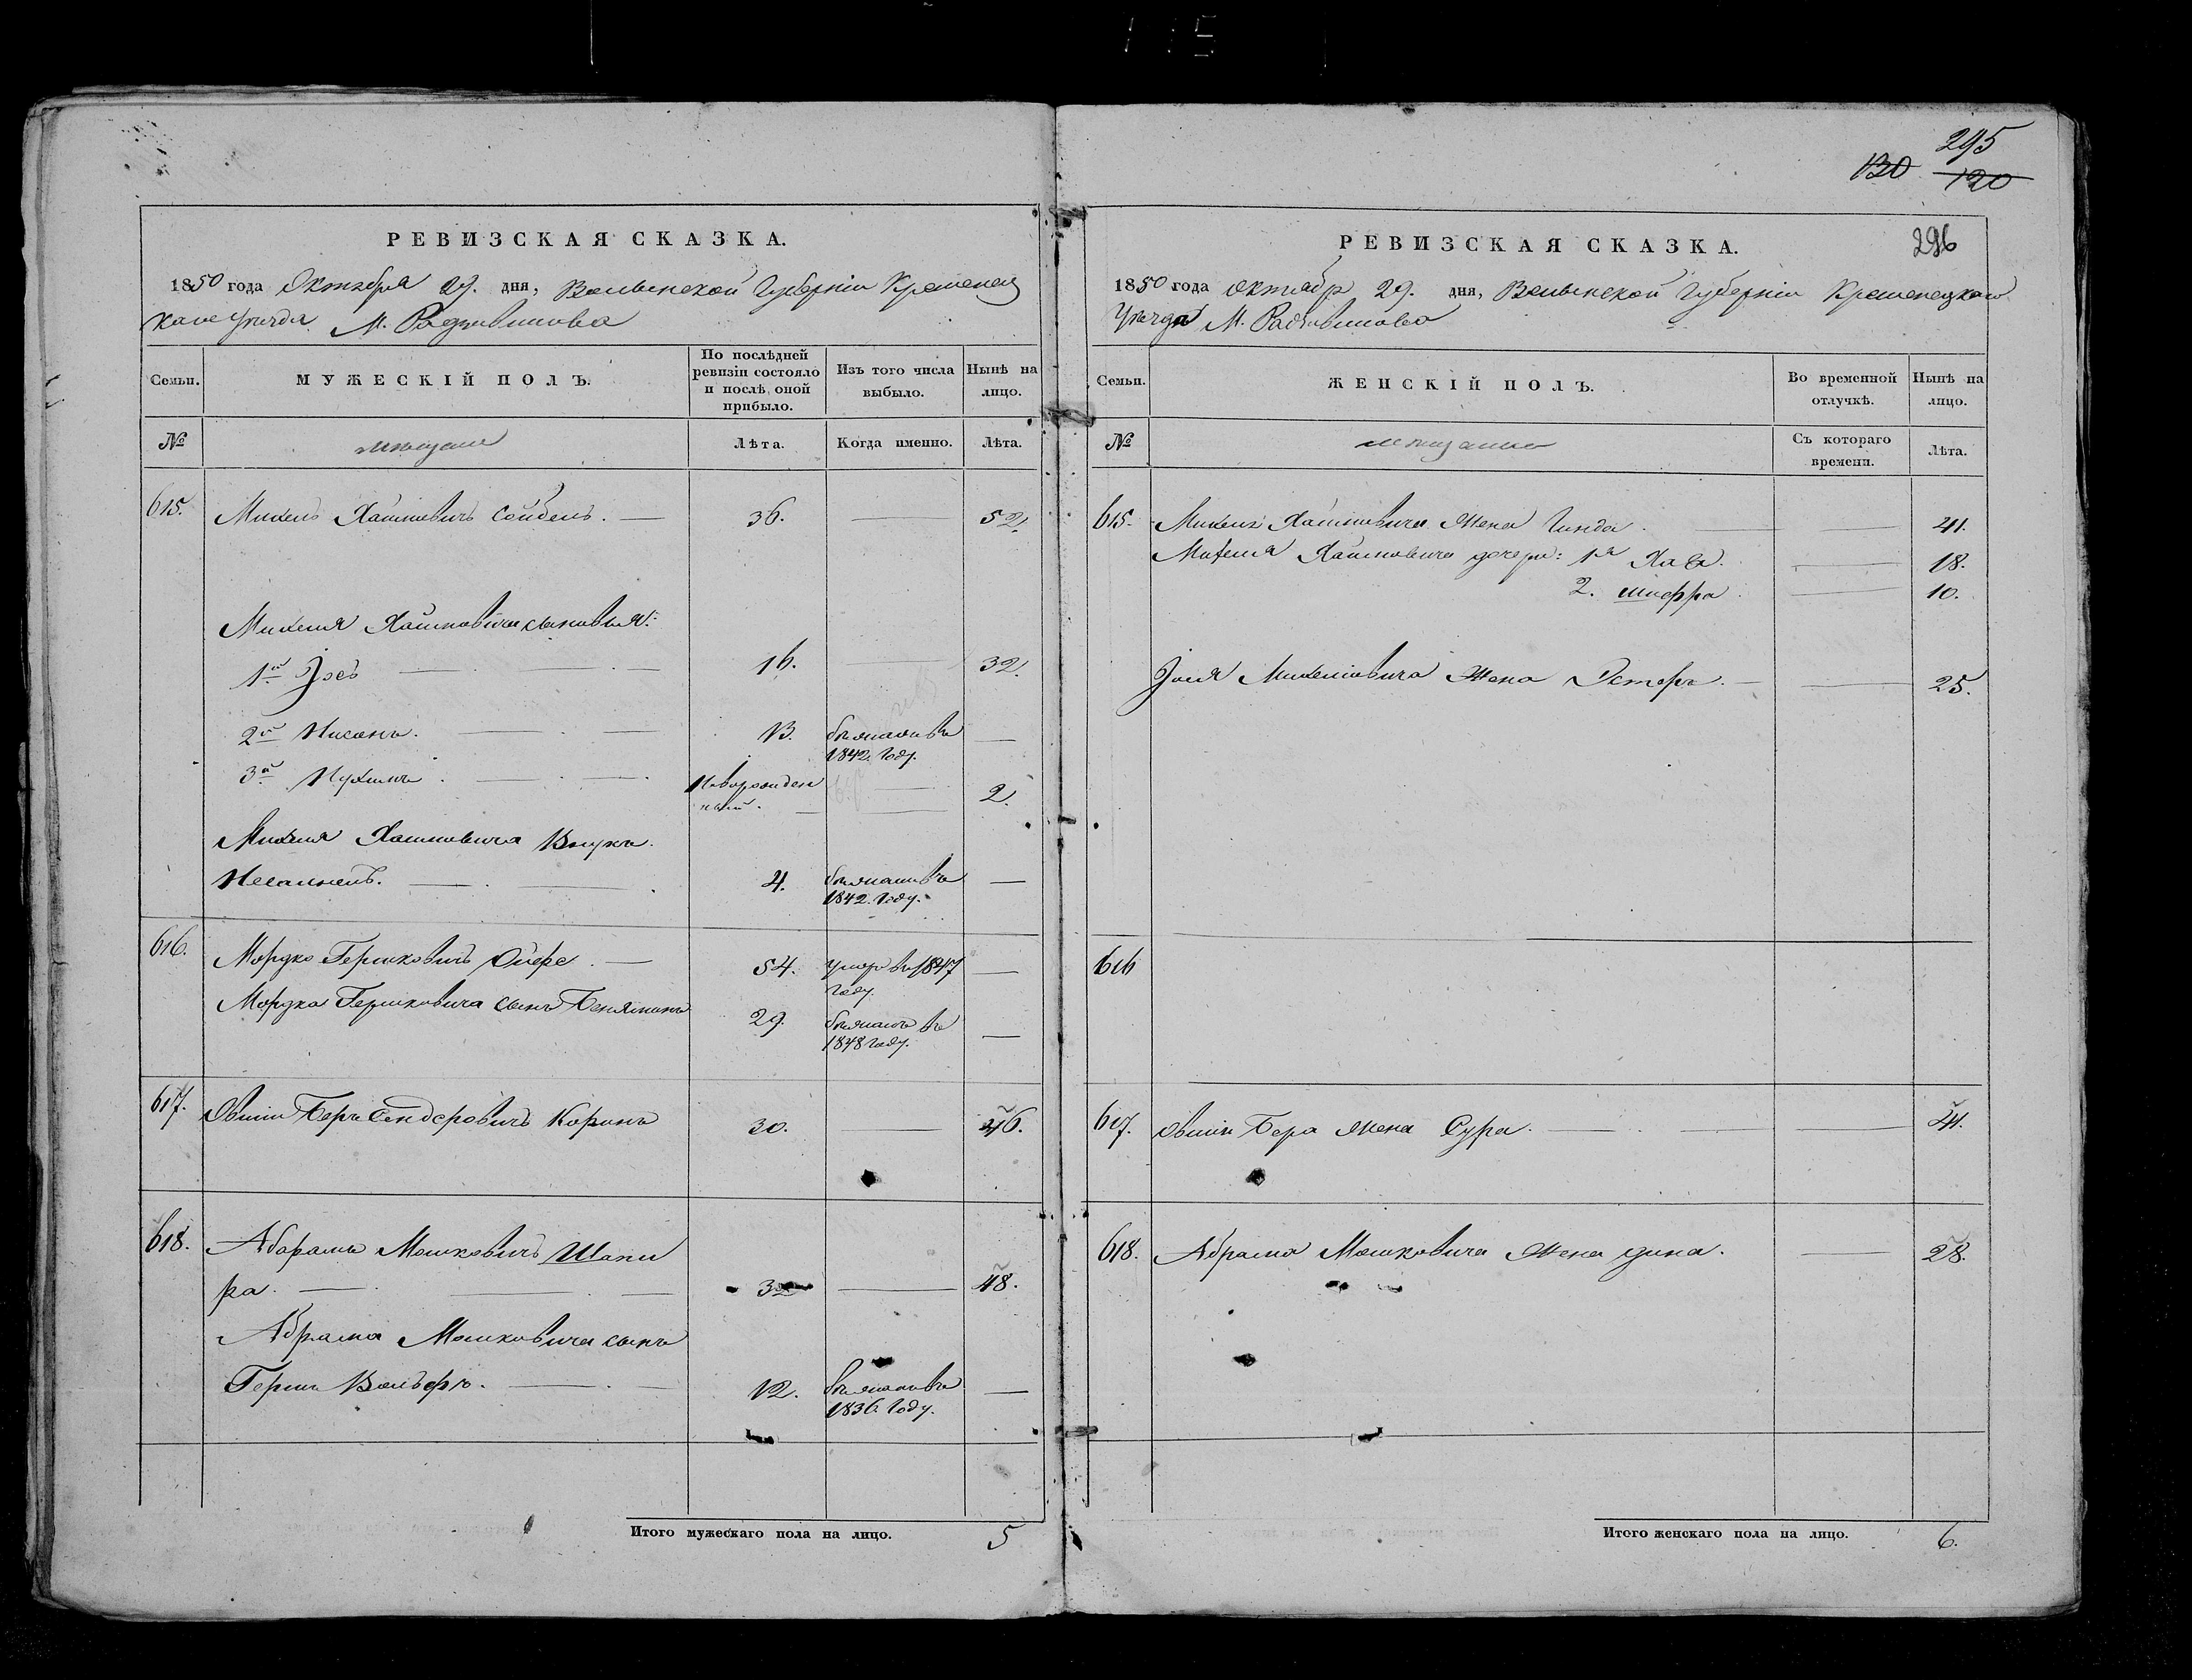 295
130 120
РЕВИЗСКАЯ СКАЗКА.
1850 года Октября 29. дня, Волынской Губерніи Кременец
каго Уѣзда М. Радзивилова
Семьи.
МУЖЕСКІЙ ПОЛЪ.
По послѣдней ревизіи состояло и послѣ оной прибыло.
Изъ того числа выбыло.
Нынѣ на лицо.
№
мѣщане
Лѣта.
Когда именно.
Лѣта.
615. Михель Хаимовичъ Сойбель. 36. 52.
Михеля Хаимовича сыновья:
1й Іосъ 16. 32.
2й Нисонъ. 13. бѣжалъ въ
1842. Году.
3й Нухимъ. Новорожден
ный. 2.
Михеля Хаимовича Внукъ.
4. бѣжалъ въ
1842. Году.
616. Мордко Гершковичъ 54. умеръ въ 1847
Году.
Мордка Гершковича сынъ Беньяминъ 29. бѣжалъ въ
1848 Году.
617. Овшія Беръ Сендеровичъ Коринъ 30. 46.
618. Абрамъ Мошковичъ Шапи
ра. 32 48.
Абрама Мошковича сынъ
Гершъ Вольфъ. 12. бѣжалъ въ
1836. Году.
Итого мужескаго пола на лицо. 5
РЕВИЗСКАЯ СКАЗКА. 296
1850 года октябр 29. дня, Волынской Губерніи Кременецкаго
Уѣзда М. Радзивилова
Семьи.
ЖЕНСКІЙ ПОЛЪ.
Во временной отлучкѣ.
Нынѣ на лицо.
№
мѣщанки
Съ котораго времени.
Лѣта.
615. Михеля Хаимовича Жена Гинда. 41.
Михеля Хаимовича дочери: 1я Хава. 18.
2. Шифра. 10.
Іося Михелиовича Жена Эстеръ. 25.
616
617. Овшія Бера Жена Сура. 41.
618. Абрама Мошковича Жена Дина. 28.
Итого женскаго пола на лицо. 6.